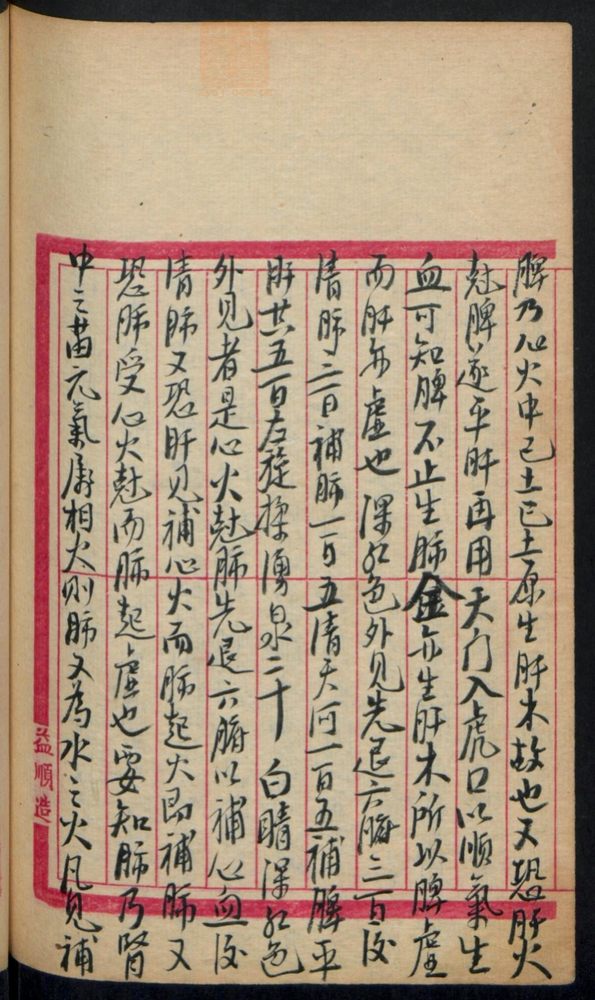 脾乃心火中己土己土原生肝木故也又恐肝火
尅脾遂平肝再用天门入虎口以順氣生
血可知脾不止生肺金亦生肝木所以脾虛
而肝亦虛也深紅色外見先退六腑三百後
清肺二百補肺一百五清天河一百五補脾平
肝共五百左旋揉湧泉二十白睛深紅色
外見者是心火尅肺先退六腑以補心血後
清肺又恐肝見補心火而肺起火即補肺又
恐肺受心火尅而肺起虛也要知肺乃腎
中之苗元氣屬相火則肺又為水之火凡見補
益順造